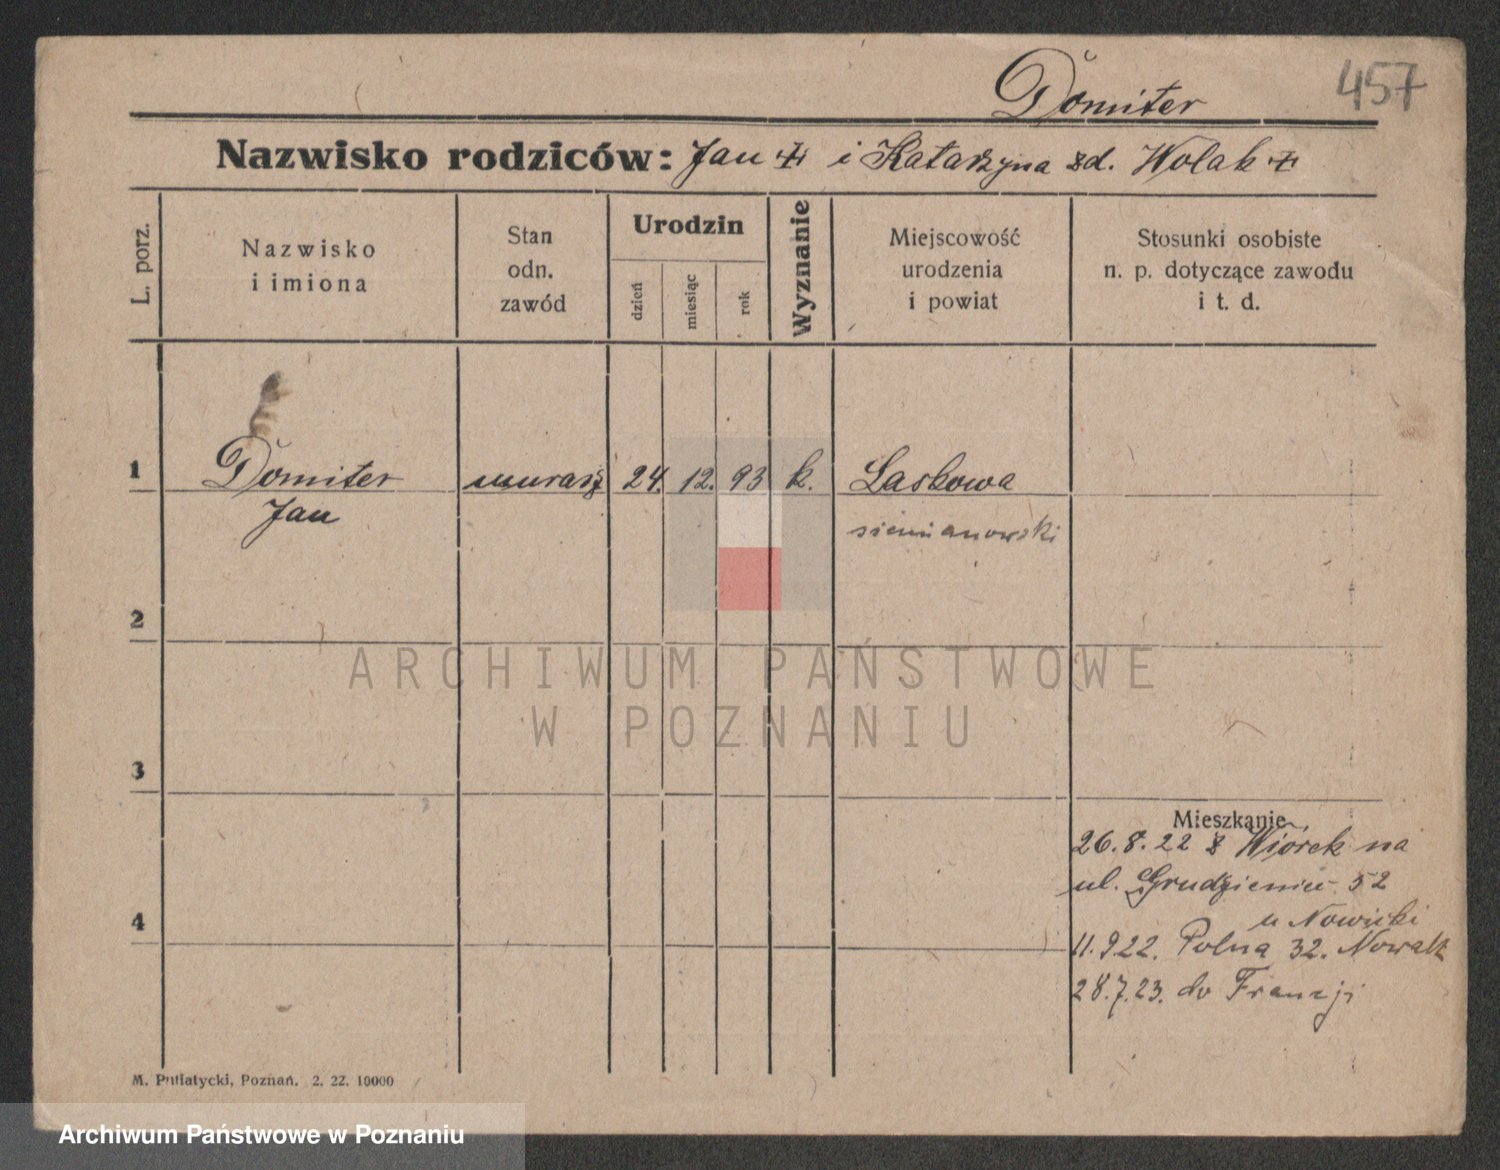 457
Domiter
Nazwisko rodziców: Jan ✝ i Katarzyna zd. Wolak ✝
L. porz.
Nazwisko
i imiona
Stan
odn.
zawód
Urodzin
dzień
miesiąc
rok
Wyznanie
Miejscowość
urodzenia
i powiat
Stosunki osobiste
n. p. dotyczące zawodu
i t. d.
1
Domiter
Jan
murarz
24. 12. 93
k.
Laskowa
siemianowski
2
3
4
Mieszkanie
26.8.22 z Wiórek na
ul. Grudzieniec 52
u Nowicki
11.9.22. Polna 32. Nowak
28.7.23. do Francji
M. Putiatycki, Poznań. 2. 22. 10000
ARCHIWUM PAŃSTWOWE
W POZNANIU
Archiwum Państwowe w Poznaniu